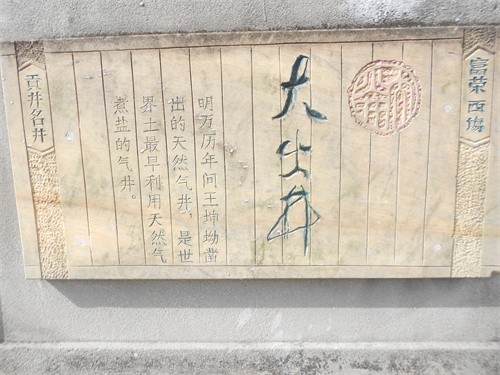 富荣西場
大出井
明万历年间王坤坳凿
出的天然气井，是世
界上最早利用天然气
煮盐的气井。
贡井名井